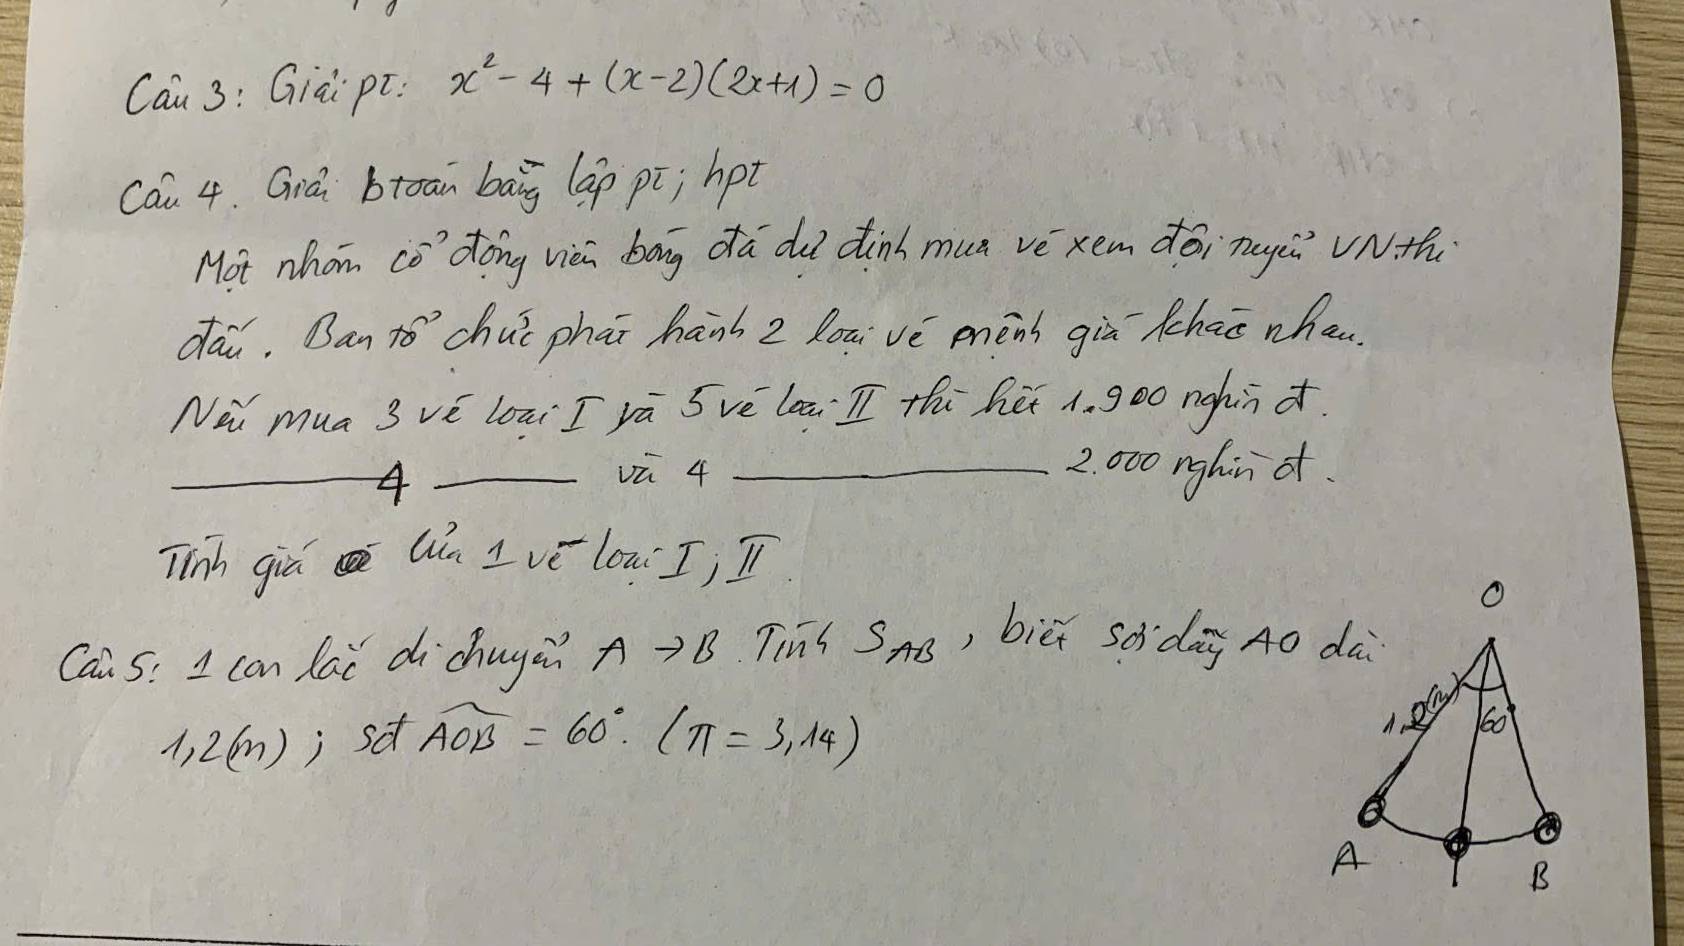 Câu 3: Giải pt: x² - 4 + (x-2)(2x+1) = 0
Câu 4. Giải btoán bằng lập pt; hpt
Một nhóm cổ động viên bóng đá dự định mua vé xem đội tuyển VN thi
đấu. Ban tổ chức phát hành 2 loại vé mệnh giá khác nhau.
Nếu mua 3 vé loại I và 5 vé loại II thì hết 1.900 nghìn đ.
4 và 4 2.000 nghìn đ.
Tính giá của 1 vé loại I; II.
Câu 5: 1 con lắc di chuyển A → B. Tính S_AB, biết sợi dây AO dài
1,2(m); sđ AOB = 60°. (π = 3,14)
O
1,2(m)
60°
A
B